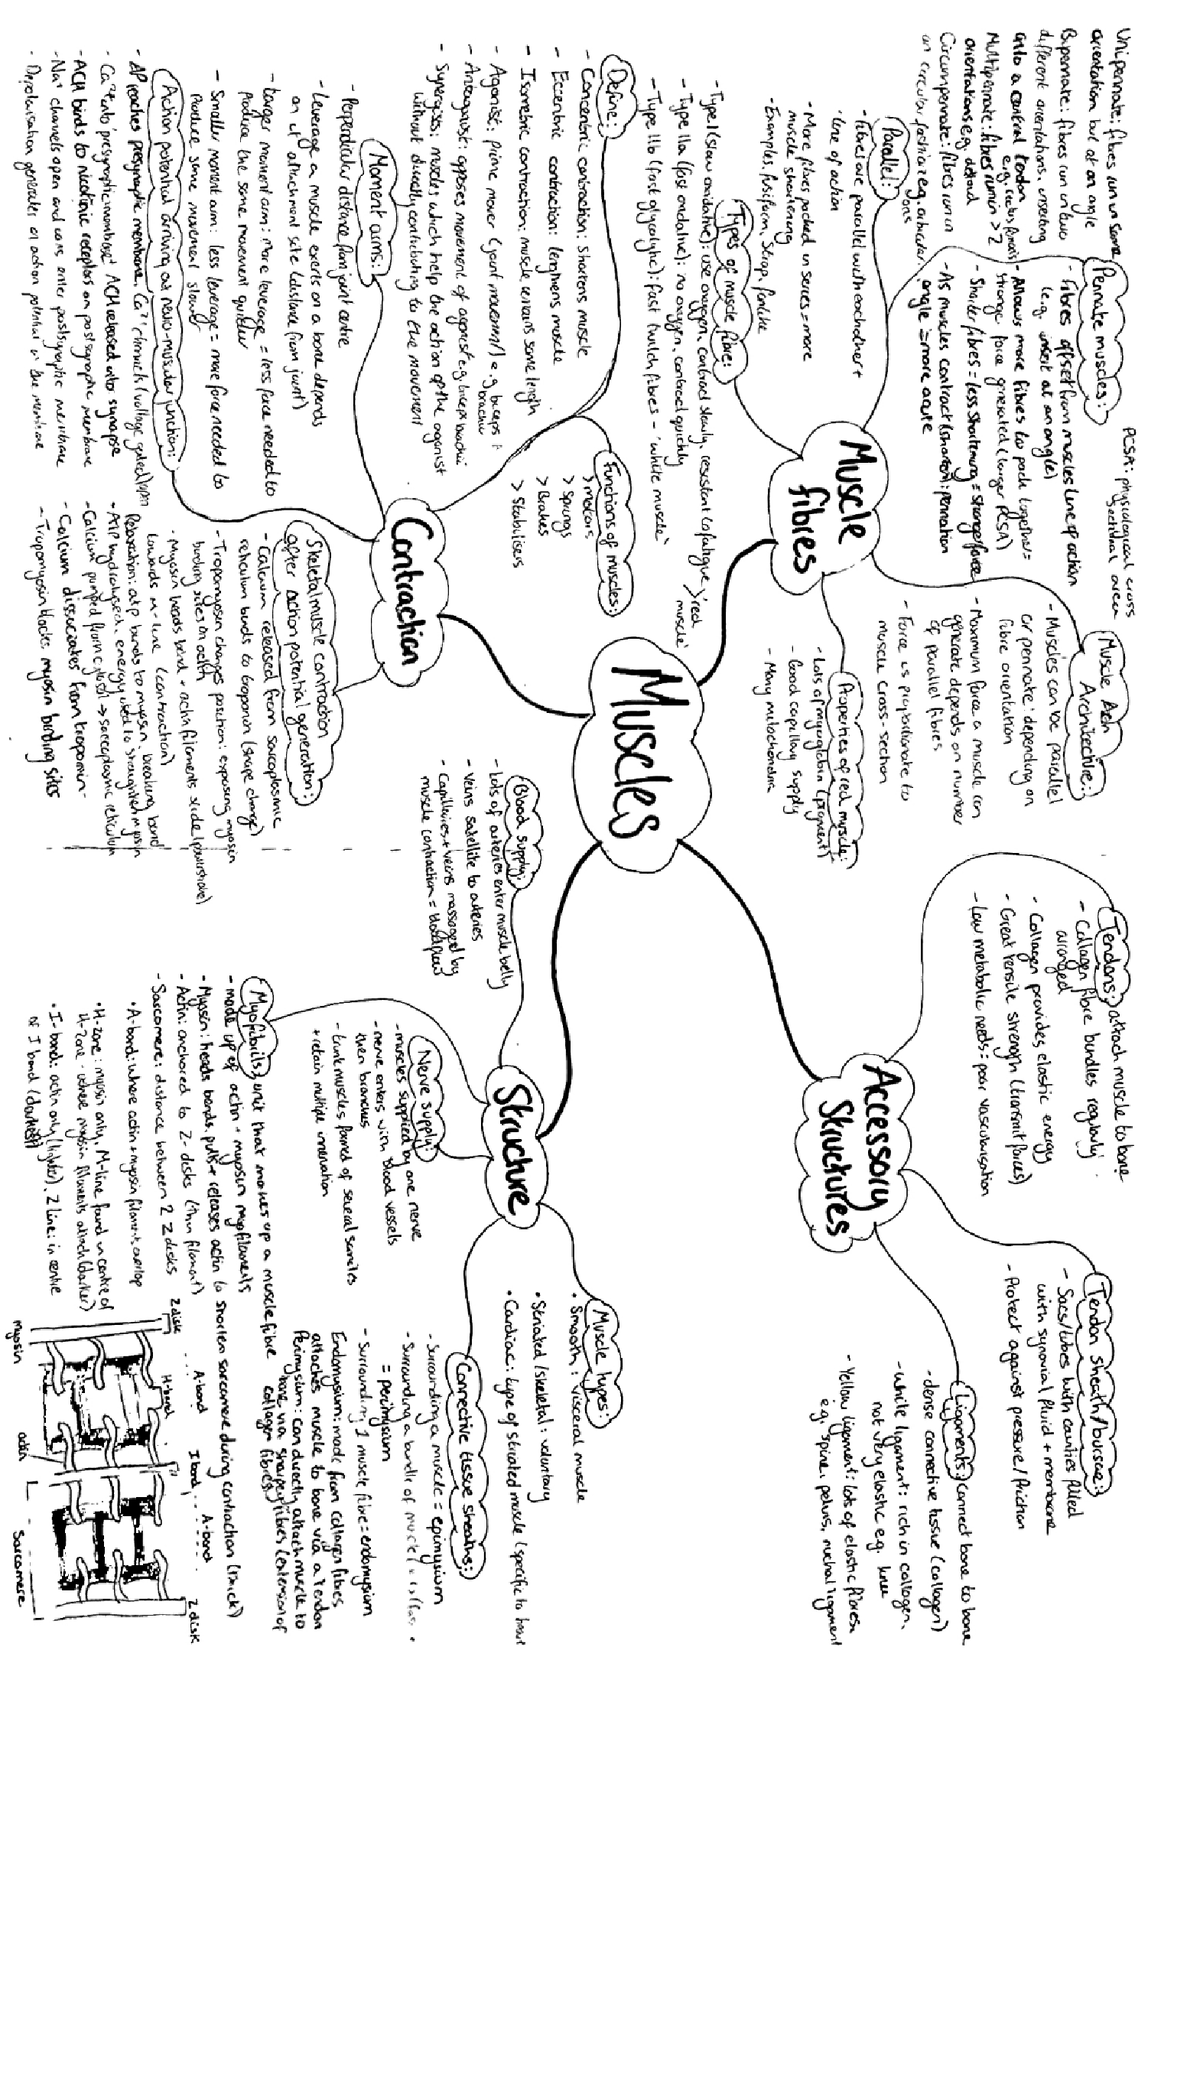 Muscles
Muscle
fibres
Pennate muscles:
- Fibres offset from muscles line of action
(e.g. insert at an angle)
- Allows more fibres to pack together =
stronger force generated (larger PCSA)
- Shorter fibres = less shortening = stronger force
- As muscles contract (shorten): pennation
angle = more acute
PCSA: physiological cross
sectional area
Unipennate: fibres run in same
orientation but at an angle
Bipennate: fibres run in two
different orientations, inserting
onto a central tendon
e.g. rectus femoris
Multipennate: fibres run in >2
orientations e.g. deltoid
Circumpennate: fibres run in
an circular fashion e.g. orbicular
oris
Parallel:
- Fibres are parallel with eachother +
line of action
- More fibres packed in series = more
muscle shortening
- Examples: fusiform, strap, fanlike
Types of muscle fibre:
- Type I (slow oxidative): use oxygen, contract slowly, resistent to fatigue
- Type IIa (fast oxidative): no oxygen, contract quickly
'red
muscle'
- Type IIb (fast glycolytic): fast twitch fibres - 'white muscle'
Muscle Arch
Architecture:
- Muscles can be parallel
or pennate: depending on
fibre orientation
- Maximum force a muscle can
generate depends on number
of parallel fibres
- Force is proportionate to
muscle cross-section
Properties of red muscle:
- Lots of myoglobin (pigment)
- Good capillary supply
- Many mitochondria
Contraction
Define:
- Concentric contraction: shortens muscle
- Eccentric contraction: lengthens muscle
- Isometric contraction: muscle remains same length
- Agonist: prime mover (joint movement) e.g. biceps
brachii
- Antagonist: opposes movement of agonist e.g. triceps brachii
- Synergists: muscles which help the action of the agonist
without directly contributing to the movement
Functions of muscles:
> motors
> springs
> brakes
> stabilisers
Moment arms:
- Perpendicular distance from joint centre
- Leverage a muscle exerts on a bone depends
on it attachment site (distance from joint)
- Larger moment arm: more leverage = less force needed to
produce the same movement quicker
- Smaller moment arm: less leverage = more force needed to
produce same movement slower
Action potential arriving at neuro-muscular junction:
- AP reaches presynaptic membrane, Ca²⁺ channels (voltage gated) open
- Ca²⁺ into presynaptic membrane: ACH released into synapse
- ACH binds to nicotinic receptors on postsynaptic membrane
- Na⁺ channels open and ions enter postsynaptic membrane
- Depolarisation generates an action potential in the membrane
Skeletal muscle contraction
after action potential generation:
- Calcium released from sarcoplasmic
reticulum binds to troponin (shape change)
- Tropomyosin changes position: exposing myosin
binding sites on actin
- Myosin heads bind + actin filaments slide (powerstroke)
towards m-line (contraction)
Relaxation: atp binds to myosin, breaking bond
- ATP hydrolysed, energy used to straighten myosin
- Calcium pumped from cytosol → sarcoplasmic reticulum
- Calcium dissociates from troponin
- Tropomyosin blocks myosin binding sites
Accessory
Structures
Tendons: attach muscle to bone
- Collagen fibre bundles regularly
arranged
- Collagen provides elastic energy
- Great tensile strength (transmit forces)
- Low metabolic needs = poor vascularisation
Tendon sheath/bursae:
- Sacs/tubes with cavities filled
with synovial fluid + membrane
- Protect against pressure/friction
Ligaments: connect bone to bone
- dense connective tissue (collagen)
- white ligament: rich in collagen,
not very elastic e.g. knee
- Yellow ligament: lots of elastic fibres
e.g. spine, pelvis, nuchal ligament
Structure
Blood supply:
- Lots of arteries enter muscle belly
- Veins satellite to arteries
- Capillaries + veins massaged by
muscle contraction = blood flow
Nerve supply:
- muscles supplied by one nerve
- nerve enters with blood vessels
then branches
- trunk muscles formed of several somites
+ retain multiple innervation
Muscle types:
• Smooth: visceral muscle
• Striated/skeletal: voluntary
• Cardiac: type of striated muscle (specific to heart
Connective tissue sheaths:
- Surrounding a muscle = epimysium
- Surrounding a bundle of muscle
= perimysium
- Surrounding 1 muscle fibre = endomysium
Endomysium: made from collagen fibres
attaches muscle to bone via a tendon
Perimysium: can directly attach muscle to
bone via sharpey fibres (extension of
collagen fibres)
Myofibrils: unit that makes up a muscle fibre
- made up of actin + myosin myofilaments
- Myosin: heads bends, pulls + releases actin to shorten sarcomere during contraction (thick)
- Actin: anchored to Z-disks (thin filament)
- Sarcomere: distance between 2 Z disks
• A-band: where actin + myosin filament overlap
• H-zone: myosin only, M-line found in centre of
H-zone - where myosin filaments attach (darker)
• I-band: actin only (lighter). Z line: in centre
of I band (darkest)
Z disk
A-band
I band
A-band
Z disk
H-band
myosin
actin
Sarcomere